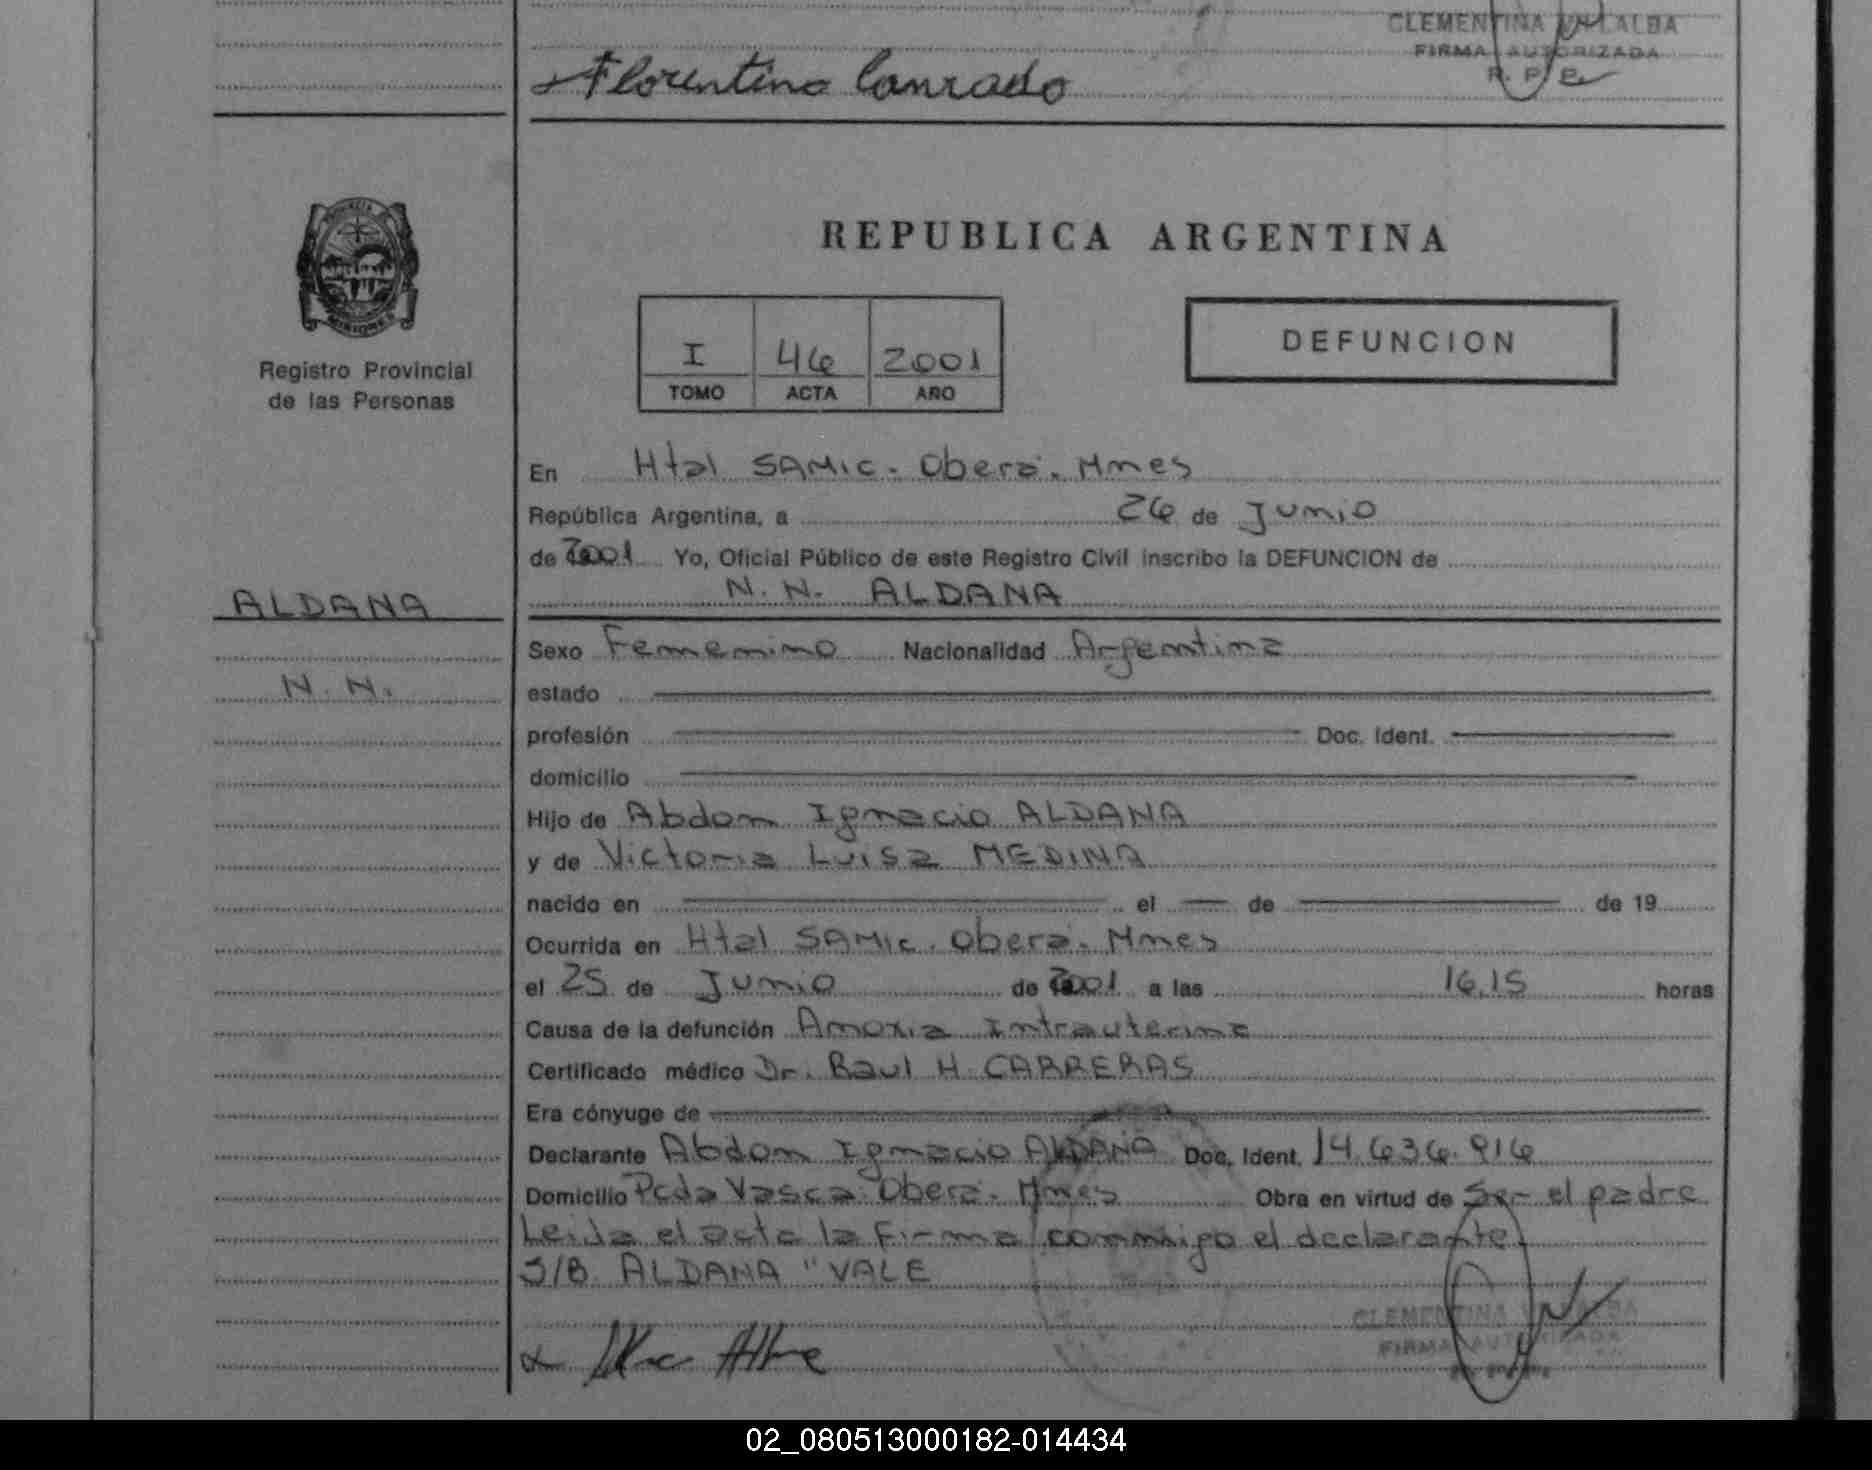 CLEMENTINA VILLALBA
FIRMA AUTORIZADA
R. P. P.
Florentino Conrado
PROVINCIA DE
MISIONES
Registro Provincial
de las Personas
REPUBLICA ARGENTINA
I 46 2001
TOMO ACTA AÑO
DEFUNCION
En Htal SAMIC. Oberá. Mnes
República Argentina, a 26 de Junio
de 2001 Yo, Oficial Público de este Registro Civil inscribo la DEFUNCION de
N. N. ALDANA
ALDANA
N. N.
Sexo Femenino Nacionalidad Argentina
estado
profesión Doc. Ident.
domicilio
Hijo de Abdon Ignacio ALDANA
y de Victoria Luisa MEDINA
nacido en el de de 19
Ocurrida en Htal SAMIC. Oberá. Mnes
el 25 de Junio de 2001 a las 16,15 horas
Causa de la defunción Anoxia Intrauterina
Certificado médico Dr. Raul H. CARRERAS
Era cónyuge de
Declarante Abdon Ignacio ALDANA Doc. Ident. 14.636.916
Domicilio Pcda Vasca. Oberá. Mnes Obra en virtud de Ser el padre
Leida el acta la firma conmigo el declarante
S/B. ALDANA "VALE
CLEMENTINA VILLALBA
FIRMA AUTORIZADA
02_080513000182-014434